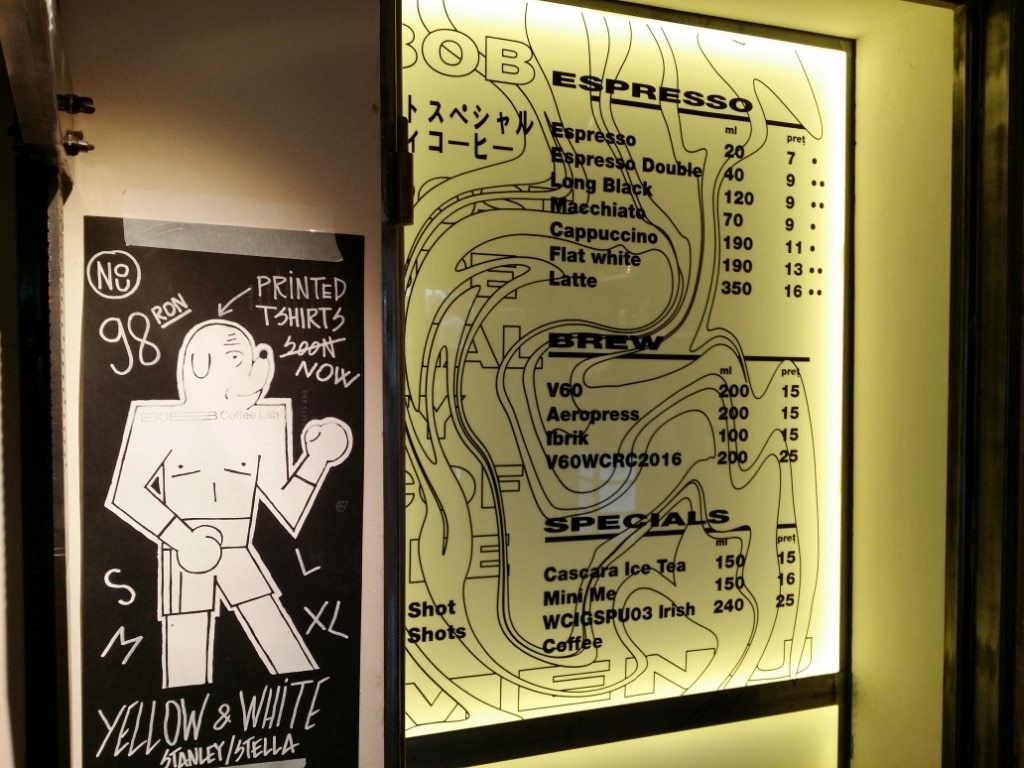 NU
98 RON
PRINTED
TSHIRTS
SOON
NOW
BOB Coffee Lab
S
M
L
XL
YELLOW & WHITE
STANLEY/STELLA
BOB
ト スペシャル
ィ コーヒー
ESPRESSO
ml preț
Espresso 20 7 •
Espresso Double 40 9 ••
Long Black 120 9 ••
Macchiato 70 9 •
Cappuccino 190 11 •
Flat white 190 13 ••
Latte 350 16 ••
BREW
ml preț
V60 200 15
Aeropress 200 15
Ibrik 100 15
V60WCRC2016 200 25
SPECIALS
ml preț
Cascara Ice Tea 150 15
Mini Me 150 16
WCIGSPU03 Irish 240 25
Coffee
Shot
Shots
MENU